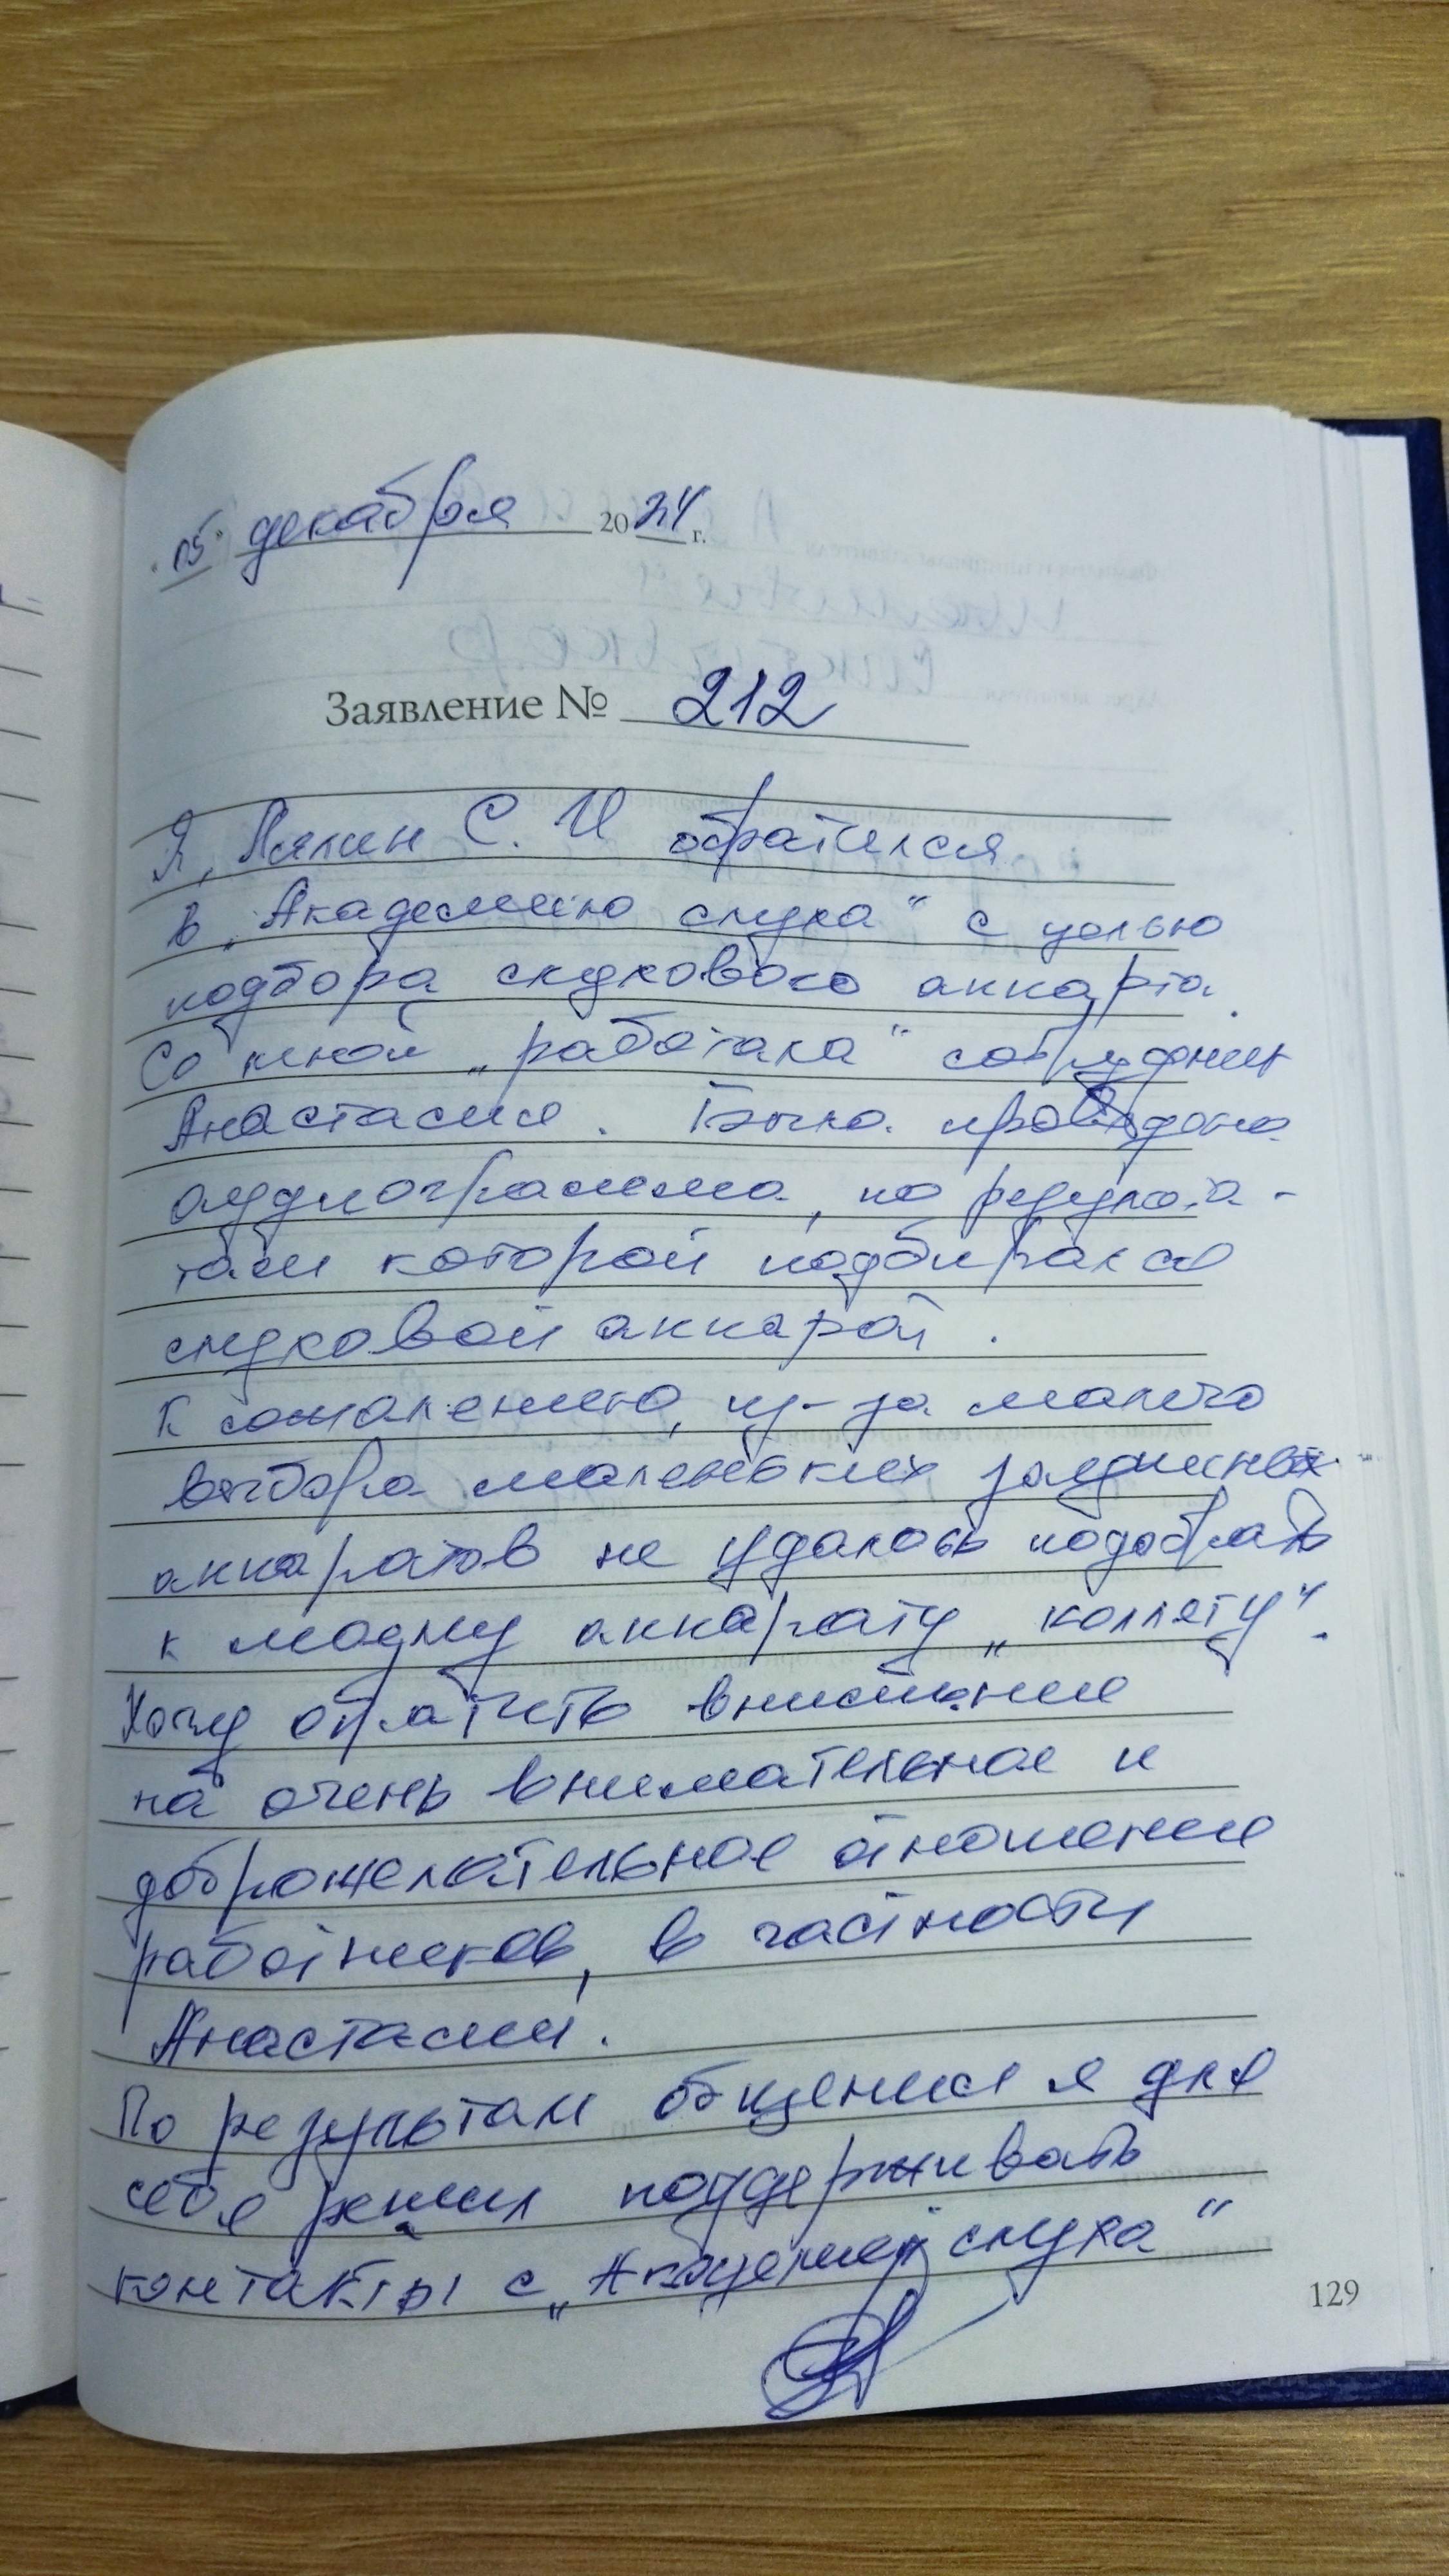 "05" декабря 2024 г.
Заявление № 212
Я, Лялин С. И обратился
в „Академию слуха" с целью
подбора слухового аппарта.
Со мной „работала" сотрудник
Анастасия. Была проведена
аудиограмма, по результа-
там которой подбирался
слуховой аппарат.
К сожалению, из-за малого
выбора маленьких заушных
аппаратов не удалось подобрать
к моему аппарату „коллегу".
Хочу обратить внимание
на очень внимательное и
доброжелательное отношение
работников, в частности
Анастасии.
По результатам общения я для
себя решил поддерживать
контакты с „Академией слуха"
129